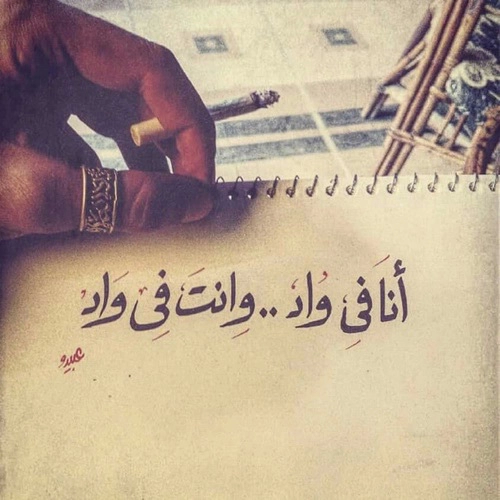 أنَا فِي وُادَ .. وِانتَ فِى وَادْ
عبده